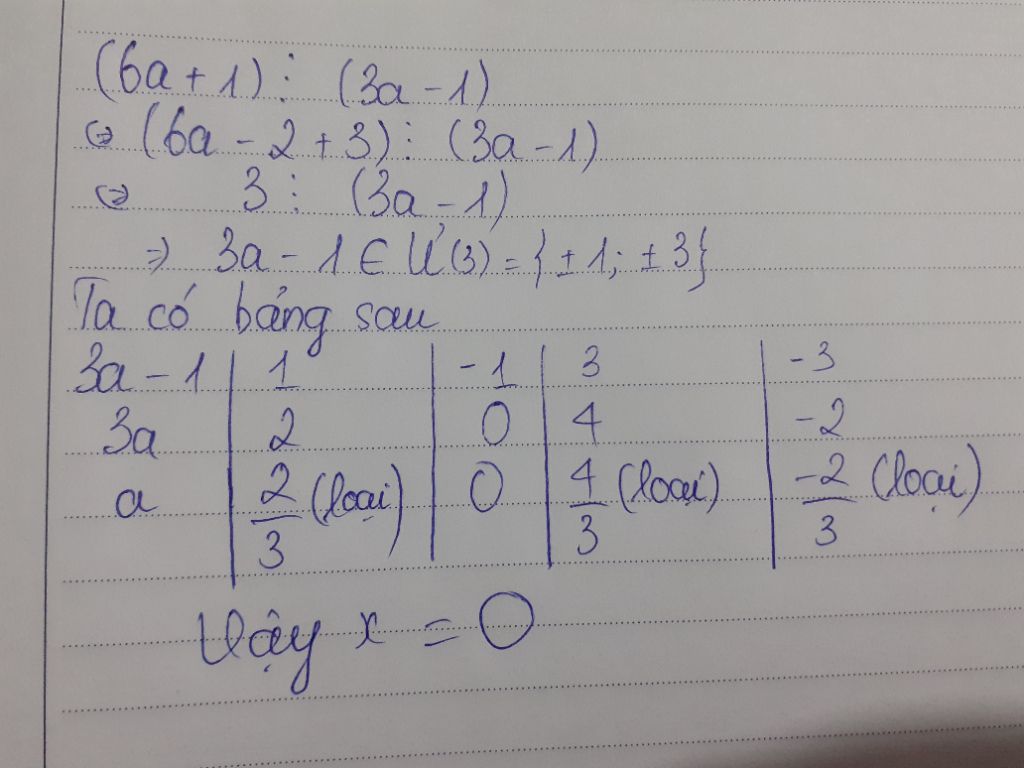 (6a + 1) ⋮ (3a - 1)
⇔ (6a - 2 + 3) ⋮ (3a - 1)
⇔ 3 ⋮ (3a - 1)
⇒ 3a - 1 ∈ Ư(3) = {±1; ±3}
Ta có bảng sau
3a - 1 | 1 | -1 | 3 | -3
3a | 2 | 0 | 4 | -2
a | 2/3 (loại) | 0 | 4/3 (loại) | -2/3 (loại)
Vậy x = 0